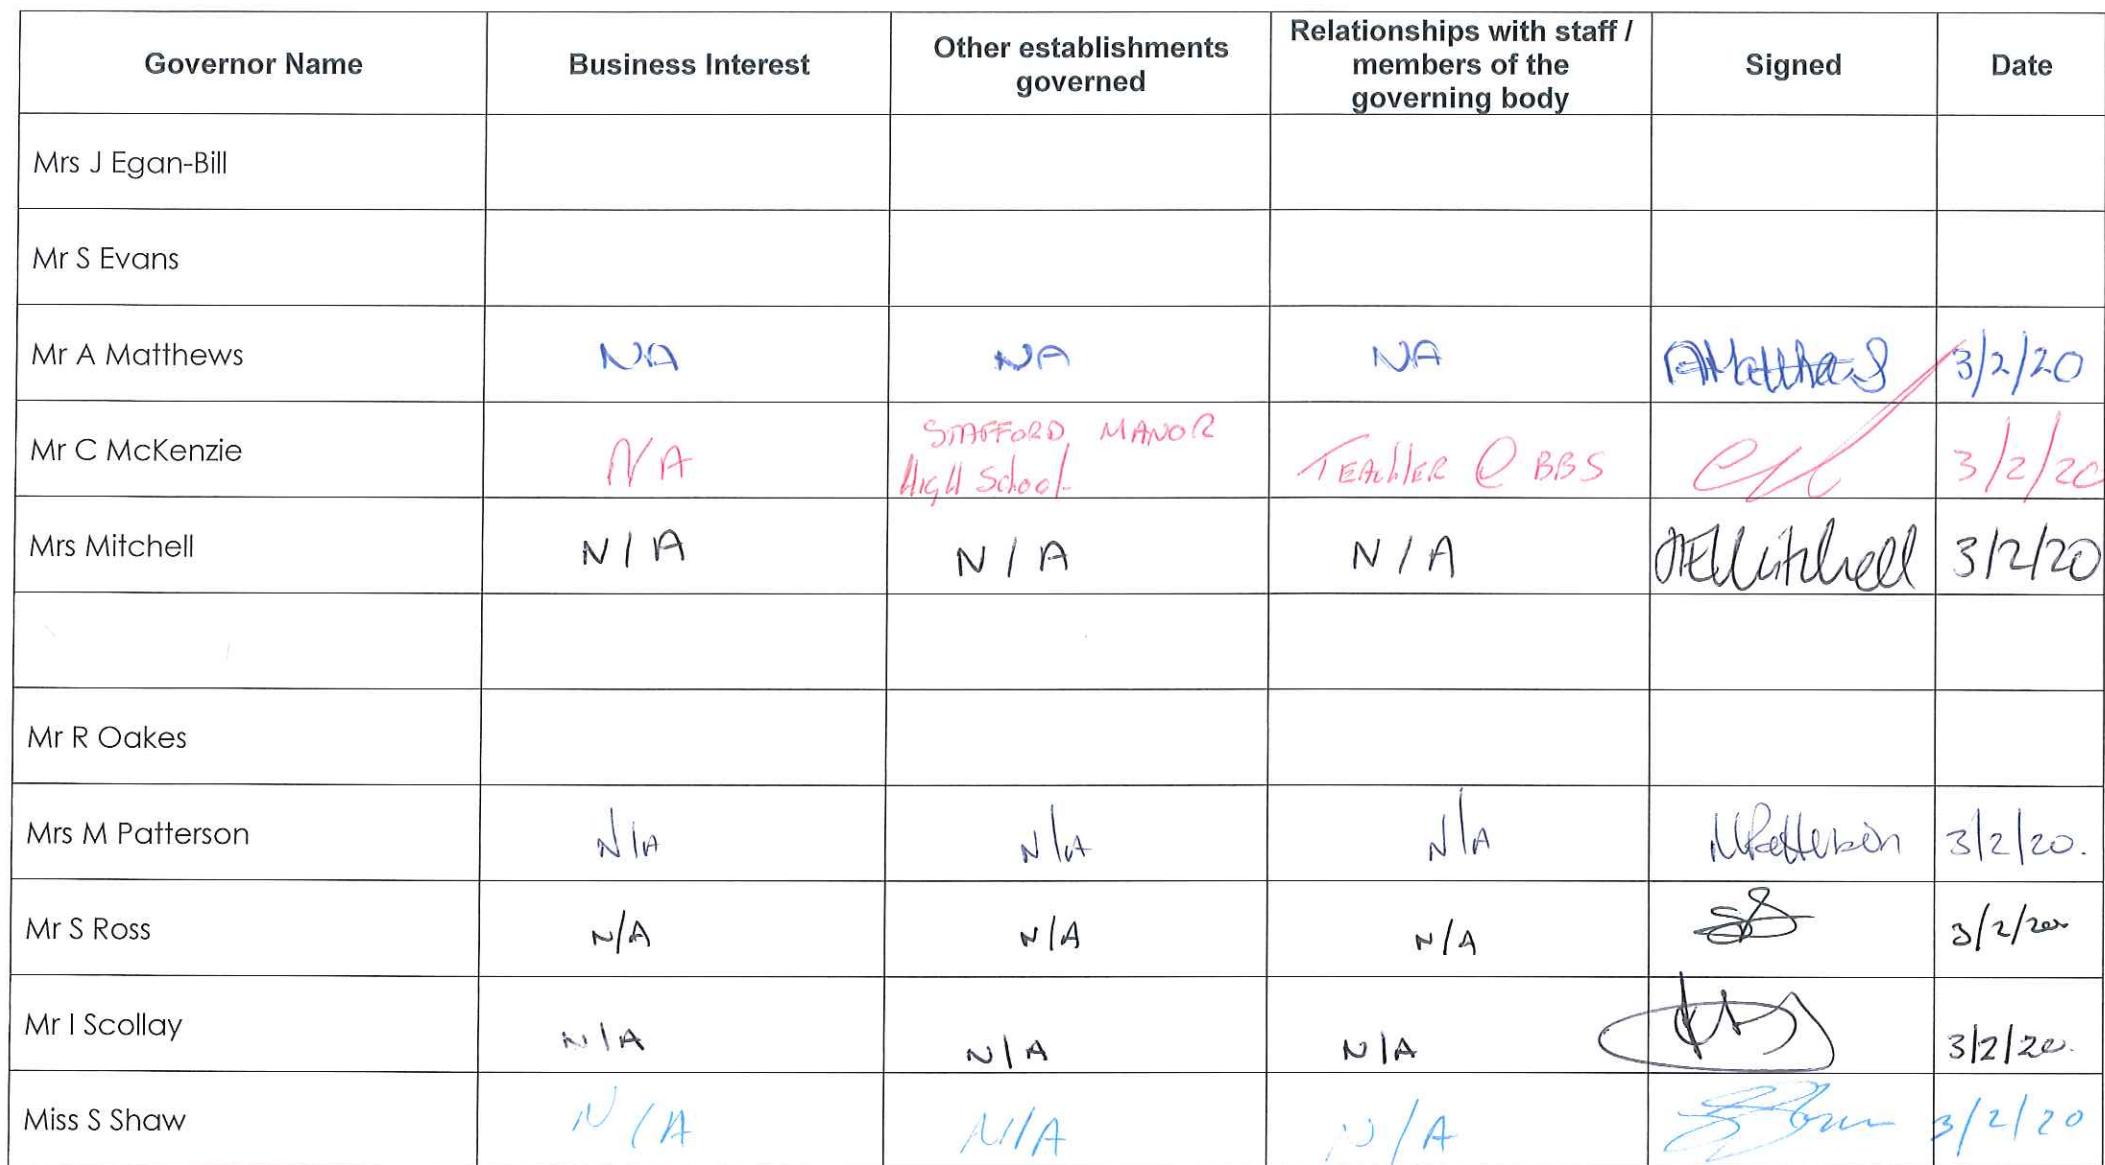 Governor Name Business Interest Other establishments governed Relationships with staff / members of the governing body Signed Date
Mrs J Egan-Bill
Mr S Evans
Mr A Matthews NA NA NA AMatthews 3/2/20
Mr C McKenzie N/A STAFFORD MANOR High School TEACHER @ BBS 3/2/20
Mrs Mitchell N/A N/A N/A JEMitchell 3/2/20
Mr R Oakes
Mrs M Patterson N/A N/A N/A MPatterson 3/2/20.
Mr S Ross N/A N/A N/A 3/2/20
Mr I Scollay N/A N/A N/A 3/2/20.
Miss S Shaw N/A N/A N/A 3/2/20